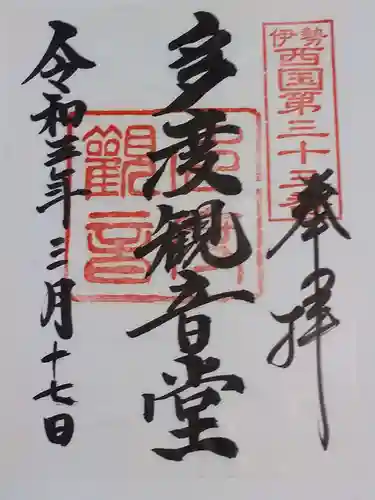 伊勢
西国第三十三番
奉拝
多度観音堂
令和三年三月十七日